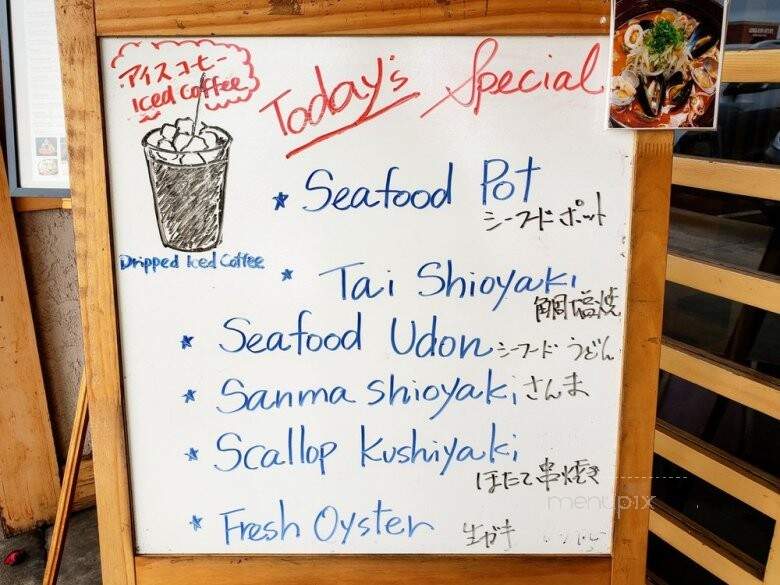 アイスコーヒー
Iced Coffee
Today's Special
Dripped Iced Coffee
* Seafood Pot
シーフードポット
* Tai Shioyaki
鯛塩焼
* Seafood Udon シーフードうどん
* Sanma Shioyaki さんま
* Scallop Kushiyaki
ほたて串焼き
* Fresh Oyster 生がき
menupix